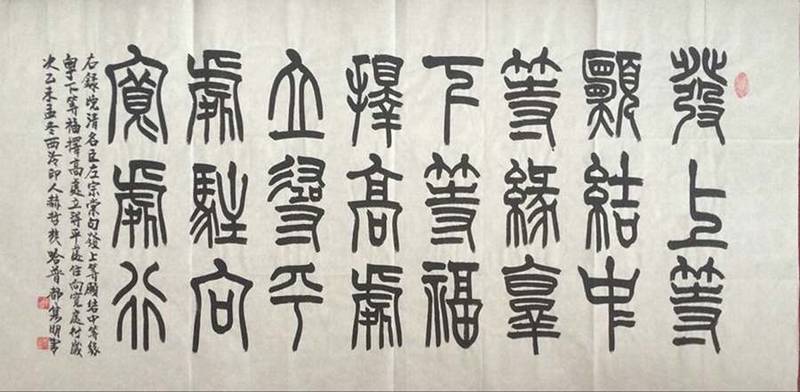 發上等
願結中
等緣享
下等福
擇高處
立尋平
處駐向
寬處行
右錄晚清名臣左宗棠句發上等願結中等緣
享下等福擇高處立尋平處住向寬處行歲
次乙未孟冬西泠印人赫哲普都雋明書